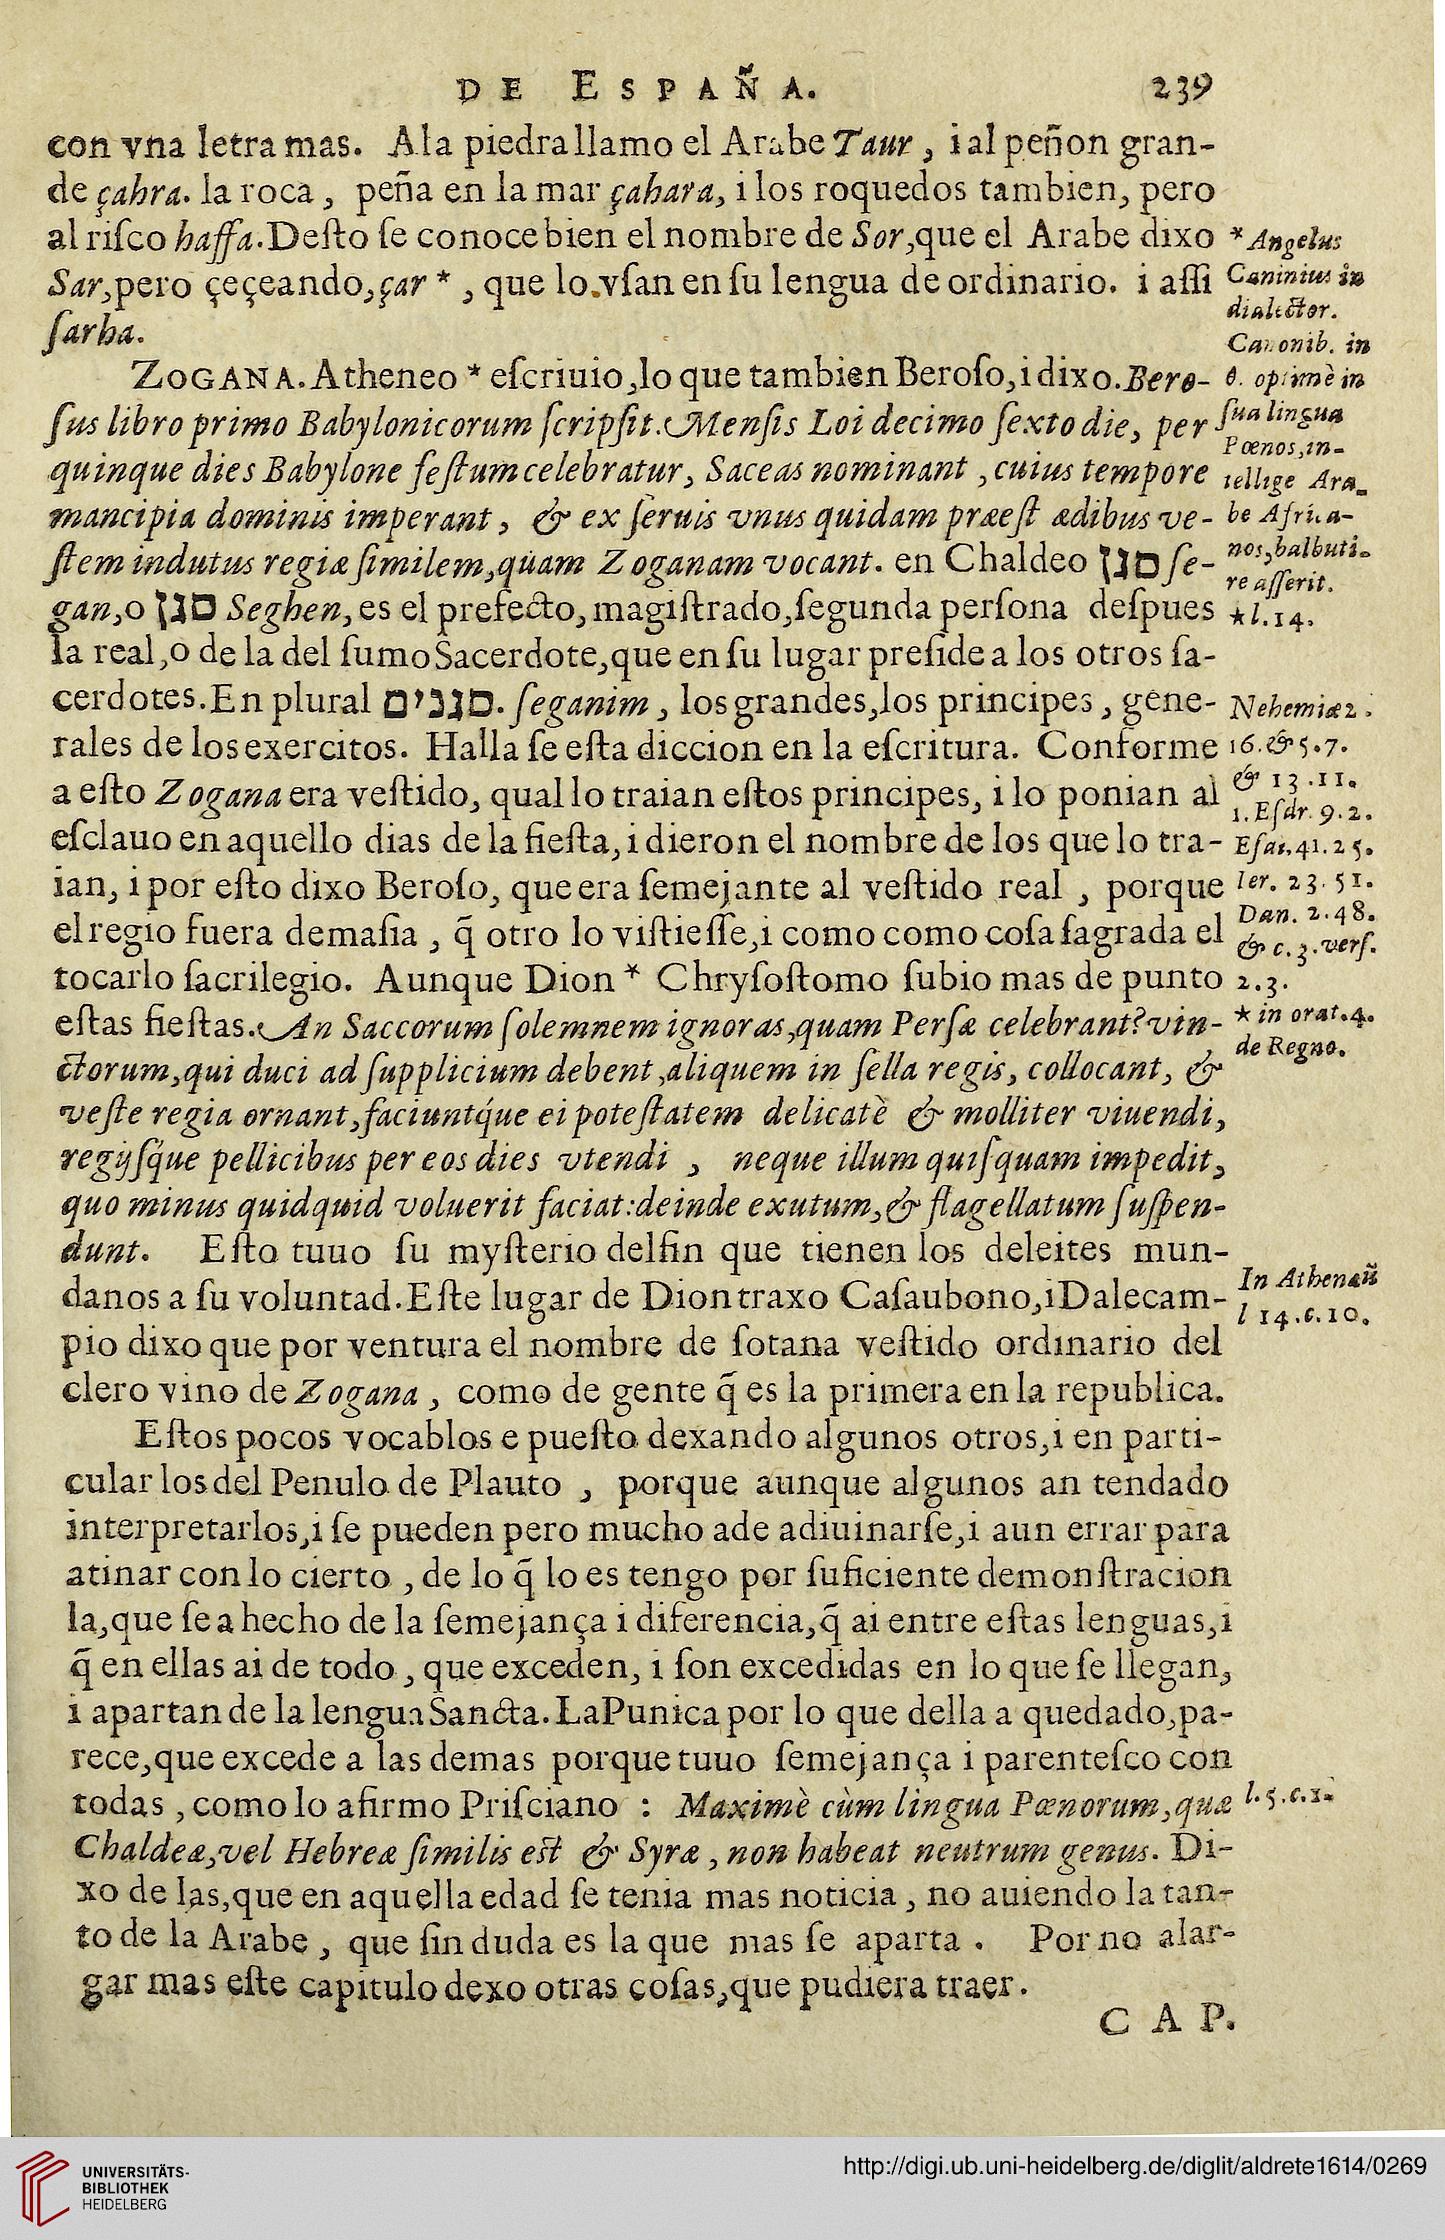 DE ESPAÑA. 239
con vna letra mas. A la piedra llamo el Arabe Taur, i al peñon gran-
de çahra. la roca, peña en la mar çahara, i los roquedos tambien, pero
al riſco haſſa. Deſto ſe conoce bien el nombre de Sor, que el Arabe dixo
Sar, pero çeçeando, çar *, que lo vſan en ſu lengua de ordinario. i aſſi
ſarha.
ZOGANA. Atheneo * eſcriuio, lo que tambien Beroſo, i dixo. Bero-
ſus libro primo Babylonicorum ſcripſit. Menſis Loi decimo ſexto die, per
quinque dies Babylone feſtum celebratur, Saceas nominant, cuius tempore
mancipia dominis imperant, & ex ſeruis vnus quidam præeſt ædibus ve-
ſtem indutus regiæ ſimilem, quam Zoganam vocant. en Chaldeo סגן ſe-
gan, o סגן Seghen, es el prefecto, magiſtrado, ſegunda perſona deſpues
la real, o de la del ſumo Sacerdote, que en ſu lugar preſide a los otros ſa-
cerdotes. En plural סגנים. ſeganim, los grandes, los principes, gene-
rales de los exercitos. Halla ſe eſta diccion en la eſcritura. Conforme
a eſto Zogana era veſtido, qual lo traian eſtos principes, i lo ponian al
eſclauo en aquello dias de la fieſta, i dieron el nombre de los que lo tra-
ian, i por eſto dixo Beroſo, que era ſemejante al veſtido real, porque
el regio fuera demaſia, q̃ otro lo viſtieſſe, i como como coſa ſagrada el
tocarlo ſacrilegio. Aunque Dion * Chryſoſtomo ſubio mas de punto
eſtas fieſtas. An Saccorum ſolemnem ignoras, quam Perſæ celebrant? vin-
ctorum, qui duci ad ſupplicium debent, aliquem in ſella regis, collocant, &
veſte regia ornant, faciuntq́ue ei poteſtatem delicatè & molliter viuendi,
regijſq́ue pellicibus per eos dies vtendi, neque illum quiſquam impedit,
quo minus quidquid voluerit faciat: deinde exutum, & flagellatum ſuſpen-
dunt. Eſto tuuo ſu myſterio delfin que tienen los deleites mun-
danos a ſu voluntad. Eſte lugar de Dion traxo Caſaubono, i Dalecam-
pio dixo que por ventura el nombre de ſotana veſtido ordinario del
clero vino de Zogana, como de gente q̃ es la primera en la republica.
Eſtos pocos vocablos e pueſto dexando algunos otros, i en parti-
cular los del Penulo de Plauto, porque aunque algunos an tendado
interpretarlos, i ſe pueden pero mucho ade adiuinarſe, i aun errar para
atinar con lo cierto, de lo q̃ lo es tengo por ſuficiente demonſtracion
la, que ſe a hecho de la ſemejança i diferencia, q̃ ai entre eſtas lenguas, i
q̃ en ellas ai de todo, que exceden, i ſon excedidas en lo que ſe llegan,
i apartan de la lengua Sancta. La Punica por lo que della a quedado, pa-
rece, que excede a las demas porque tuuo ſemejança i parenteſco con
todas, como lo afirmo Priſciano : Maximè cùm lingua Pœnorum, quæ
Chaldeæ, vel Hebreæ ſimilis eſt & Syræ, non habeat neutrum genus. Di-
xo de las, que en aquella edad ſe tenia mas noticia, no auiendo la tan-
to de la Arabe, que ſin duda es la que mas ſe aparta. Por no alar-
gar mas eſte capitulo dexo otras coſas, que pudiera traer.
CAP.
* Angelus
Caninius in
dialector.
Canonib. in
θ. optimè in
ſua lingua
Pœnos, in-
tellige Ara-
be Africa-
nos, balbuti-
re aſſerit.
* l. 14.
Nehemiæ 2.
16. & 5. 7.
& 13. 11.
1. Eſdr. 9. 2.
Eſai. 41. 25.
Ier. 23. 51.
Dan. 2. 48.
& c. 3. verſ.
2. 3.
* in orat. 4.
de Regno.
In Athenæū
l 14. c. 10.
l. 5. c. 1.
UNIVERSITÄTS-
BIBLIOTHEK
HEIDELBERG
http://digi.ub.uni-heidelberg.de/diglit/aldrete1614/0269